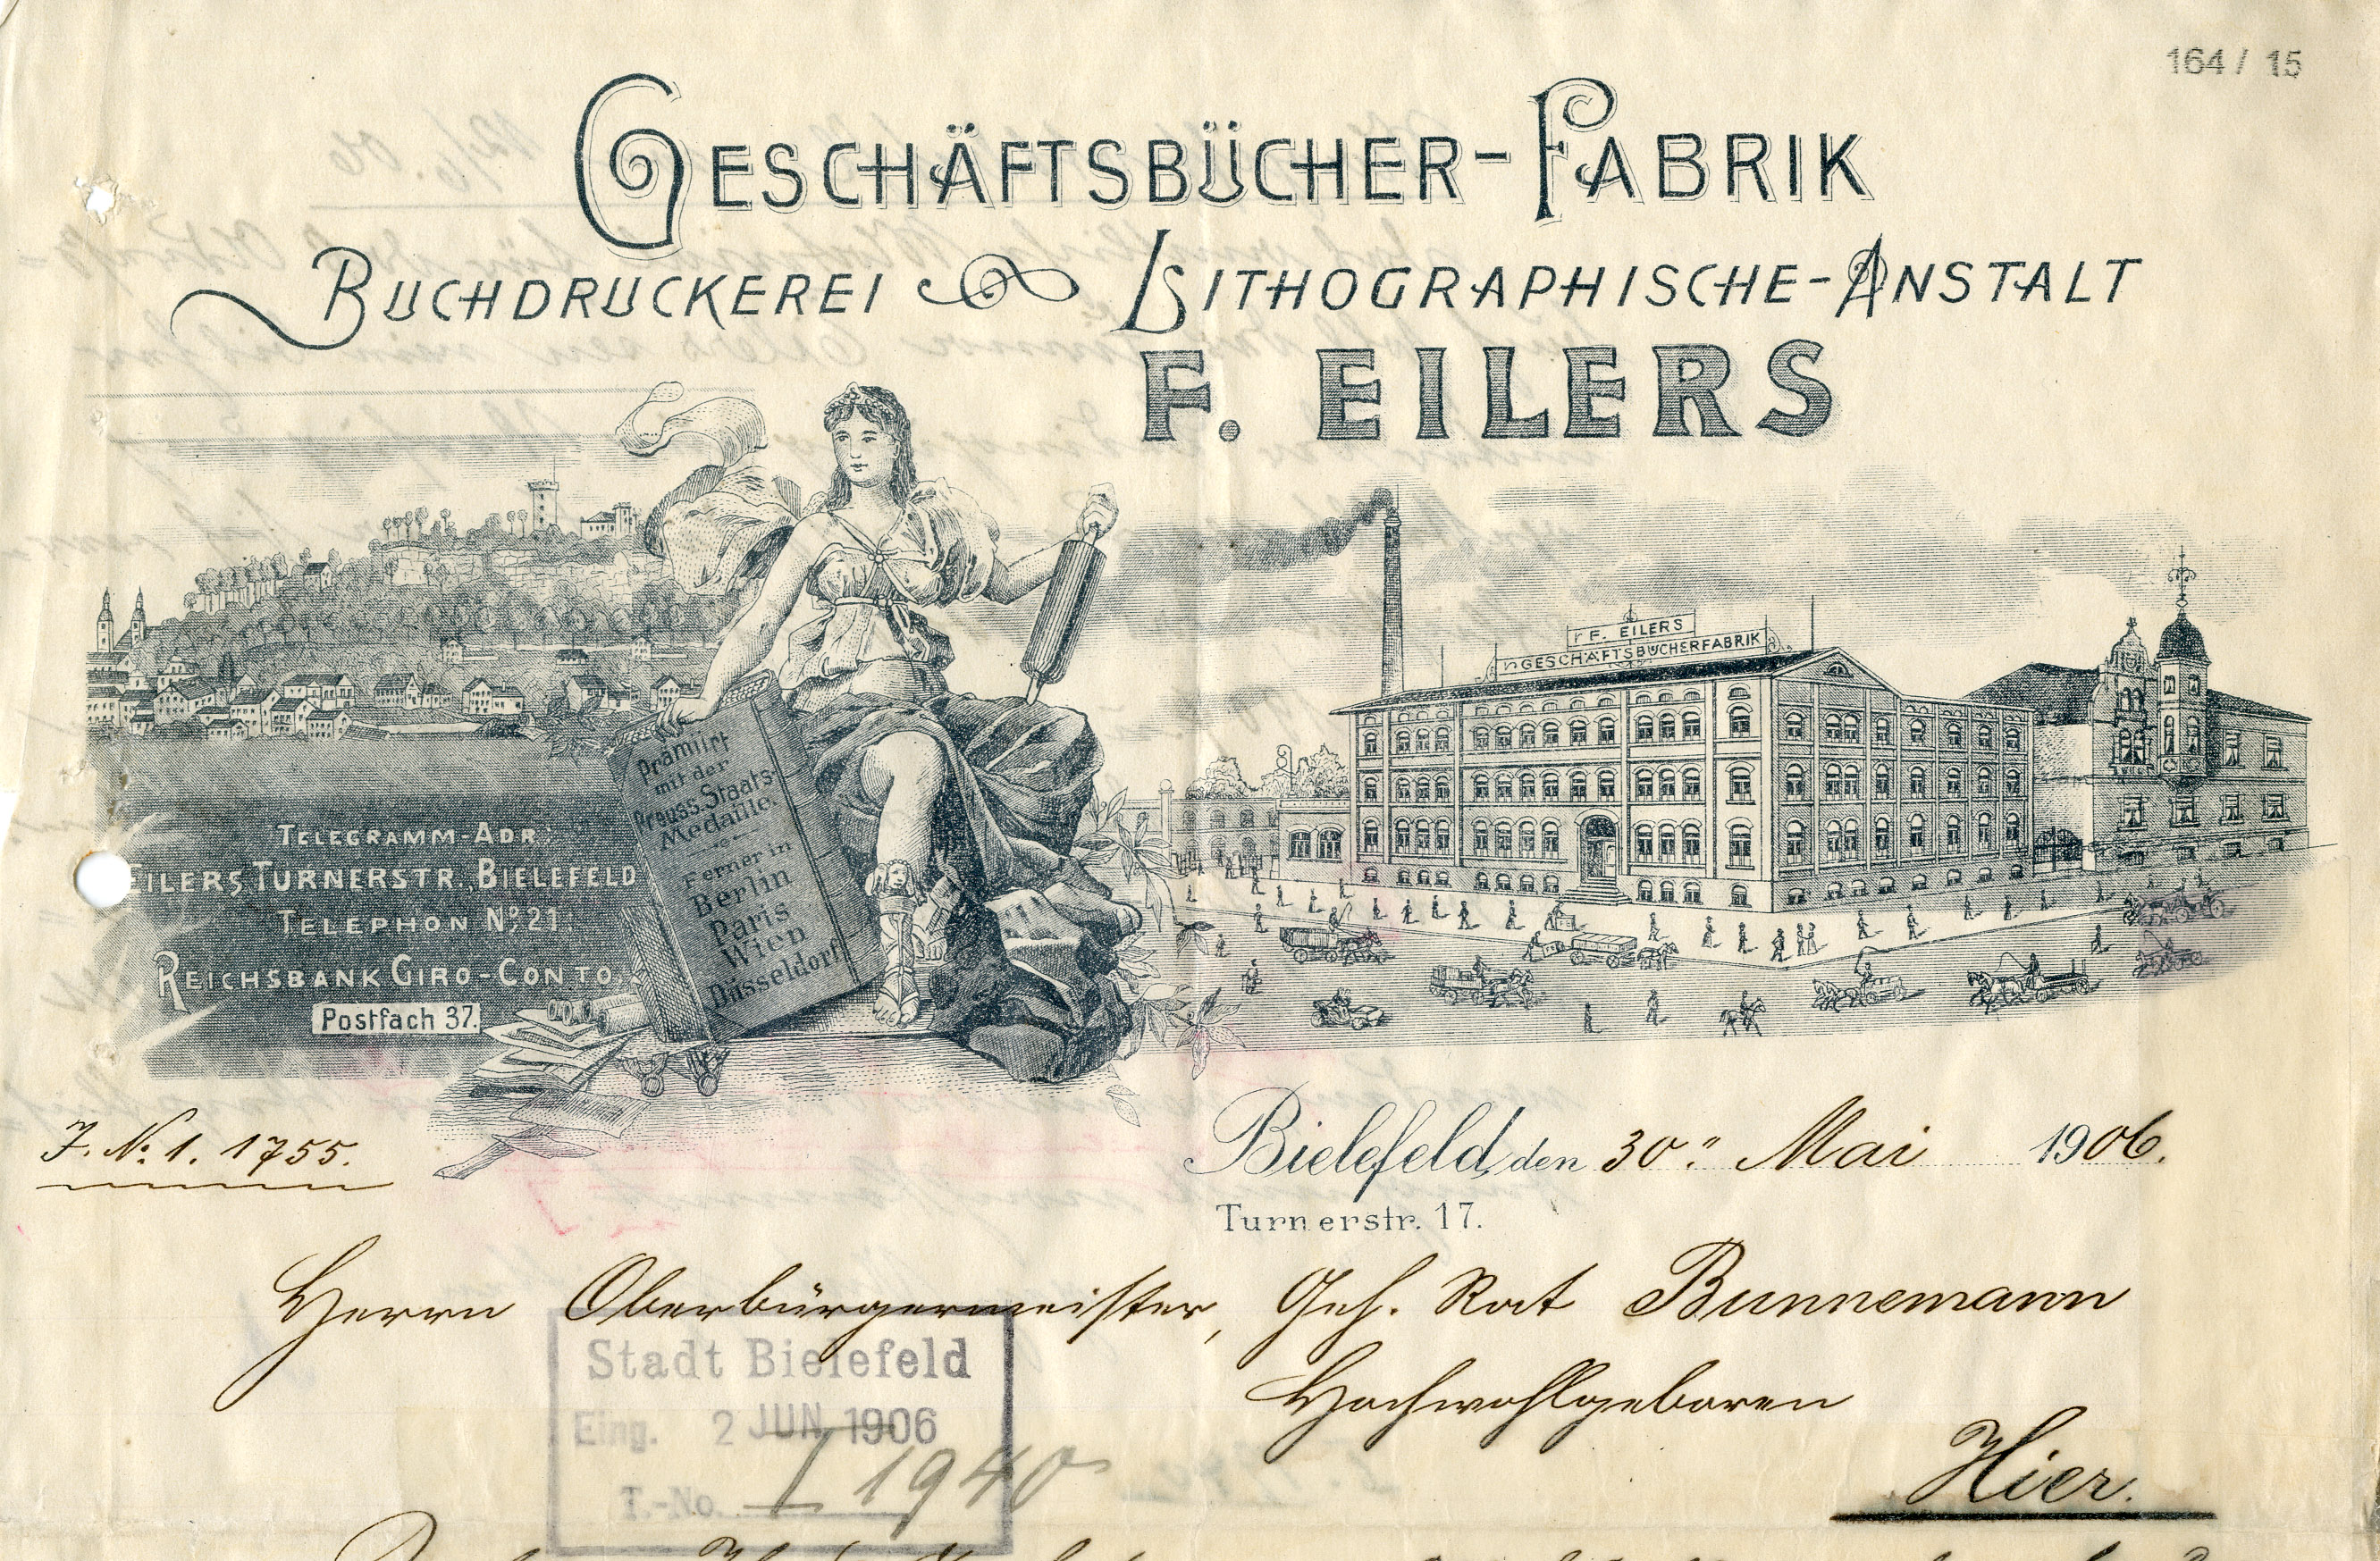 164 / 15
GESCHÄFTSBÜCHER-FABRIK
BUCHDRUCKEREI LITHOGRAPHISCHE-ANSTALT
F. EILERS
F. EILERS
GESCHÄFTSBÜCHERFABRIK
Prämiirt
mit der
Preuss. Staats-
Medaille.
Ferner in
Berlin
Paris
Wien
Düsseldorf
TELEGRAMM-ADR:
EILERS TURNERSTR. BIELEFELD
TELEPHON No. 21.
REICHSBANK GIRO-CONTO
Postfach 37.
J. No. 1. 1755.
Bielefeld, den 30. Mai 1906.
Turnerstr. 17.
Herrn Oberbürgermeister, Geh. Rat Bunnemann
Hochwohlgeboren
Hier.
Stadt Bielefeld
Eing. 2 JUN. 1906
T.-No. I 1940